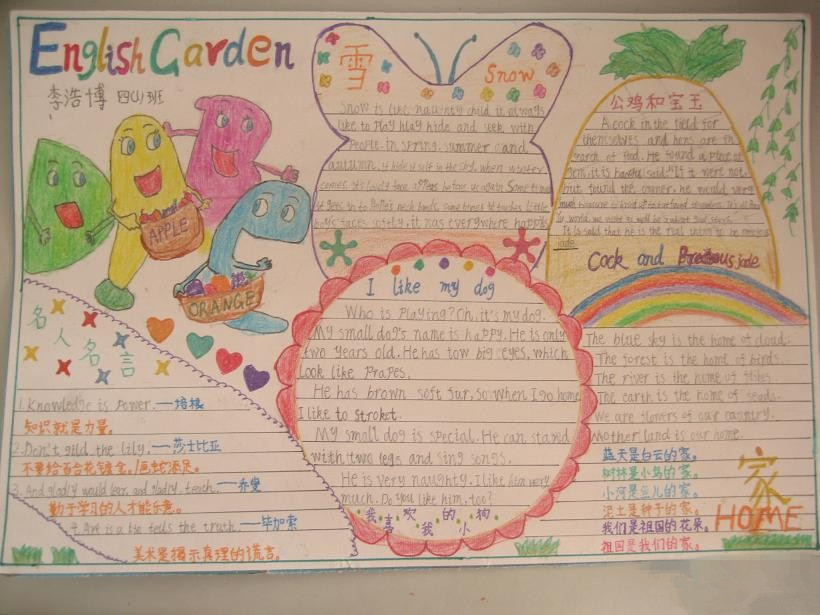 English Garden
李浩博 四(1)班
APPLE
ORANGE
雪
Snow
Snow is like naughty child it always
like to play hlay hide and seek with
People in spring, summer and
autumn. it hide it self in the sky, when winter
comes, it's lovely face again. Some time
softly, it was everywhere happily
公鸡和宝玉
A cock in the field for
themselves and hens are in
search of food. He found a piece of
it were not,
but found the owner, he would very
It is said that he is the real thing to he
jade.
Cock and Precious jade
I like my dog
Who is Playing? Oh, it's my dog.
My small dog's name is happy. He is only
two years old. He has tow big eyes, which
Look like Prapes.
He has brown soft fur, so when I go home
I like to stroket.
My small dog is special. He can stand
with two legs and sing songs.
He is very naughty. I like him very
much. Do you like him, too?
我喜欢我的小狗
名人名言
1. Knowledge is Power. —培根
知识就是力量。
2. Don't gild the lily. —莎士比亚
不要给百合花镀金。/画蛇添足。
3. And gladly would lear, and gladly teach. —乔叟
勤于学习的人才能乐意。
4. Art is a lie tells the truth. —毕加索
美术是揭示真理的谎言。
The blue sky is the home of cloud.
The forest is the home of birds.
The river is the home of fishes.
The earth is the home of seads.
We are flowers of our country.
Mother land is our home.
蓝天是白云的家。
树林是小鸟的家。
小河是鱼儿的家。
泥土是种子的家。
我们是祖国的花朵。
祖国是我们的家。
家
HOME